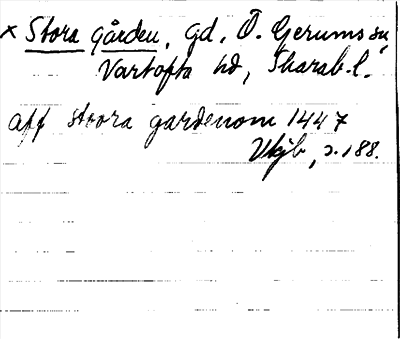 × Stora Gården, gd, Ö. Gerums sn,
Vartofta hd, Skarab. l.
aff stora gardenom 1447
Vkjb, s. 188.